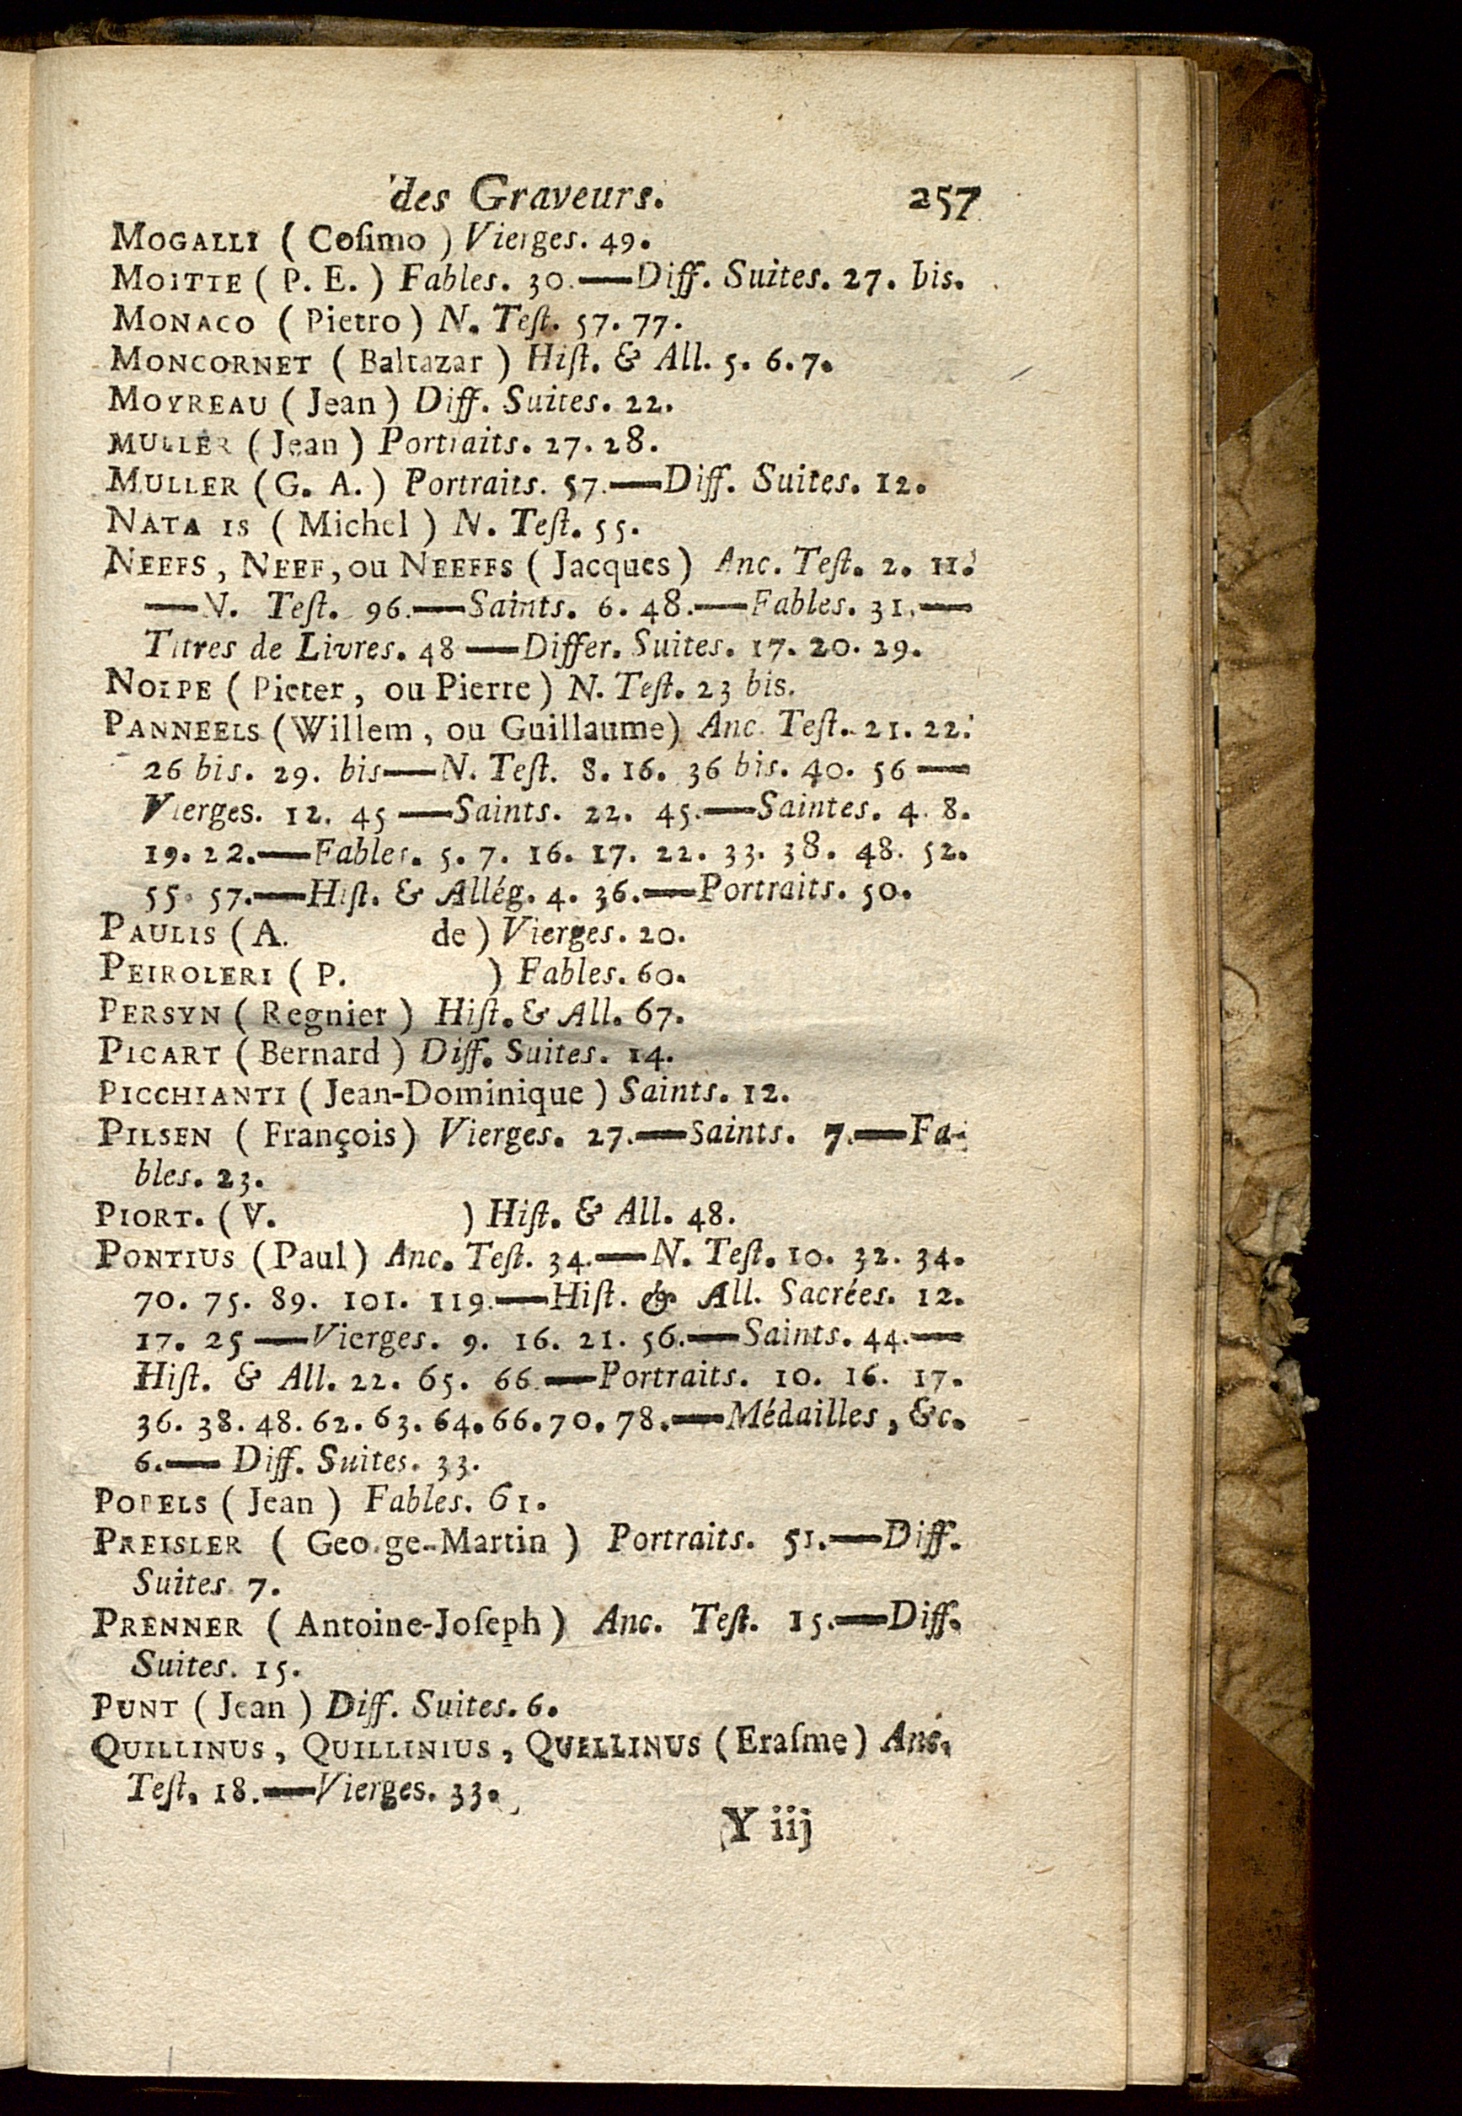 des Graveurs. 257
MOGALLI ( Coſimo ) Vierges. 49.
MOITTE ( P. E. ) Fables. 30.—Diff. Suites. 27. bis.
MONACO ( Pietro ) N. Teſt. 57. 77.
MONCORNET ( Baltazar ) Hiſt. & All. 5. 6. 7.
MOYREAU ( Jean ) Diff. Suites. 22.
MULLER ( Jean ) Portraits. 27. 28.
MULLER ( G. A. ) Portraits. 57.—Diff. Suites. 12.
NATA IS ( Michel ) N. Teſt. 55.
NEEFS, NEEF, ou NEEFFS ( Jacques ) Anc. Teſt. 2. 11.
—N. Teſt. 96.—Saints. 6. 48.—Fables. 31.—
Titres de Livres. 48—Differ. Suites. 17. 20. 29.
NOLPE ( Pieter, ou Pierre ) N. Teſt. 23 bis.
PANNEELS ( Willem, ou Guillaume ) Anc. Teſt. 21. 22.
26 bis. 29. bis—N. Teſt. 8. 16. 36 bis. 40. 56—
Vierges. 12. 45—Saints. 22. 45.—Saintes. 4. 8.
19. 22.—Fables. 5. 7. 16. 17. 22. 33. 38. 48. 52.
55. 57.—Hiſt. & Allég. 4. 36.—Portraits. 50.
PAULIS ( A. de ) Vierges. 20.
PEIROLERI ( P. ) Fables. 60.
PERSYN ( Regnier ) Hiſt. & All. 67.
PICART ( Bernard ) Diff. Suites. 14.
PICCHIANTI ( Jean-Dominique ) Saints. 12.
PILSEN ( François ) Vierges. 27.—Saints. 7.—Fa-
bles. 23.
PIORT. ( V. ) Hiſt. & All. 48.
PONTIUS ( Paul ) Anc. Teſt. 34.—N. Teſt. 10. 32. 34.
70. 75. 89. 101. 119.—Hiſt. & All. Sacrées. 12.
17. 25—Vierges. 9. 16. 21. 56.—Saints. 44.—
Hiſt. & All. 22. 65. 66.—Portraits. 10. 16. 17.
36. 38. 48. 62. 63. 64. 66. 70. 78.—Médailles, &c.
6.—Diff. Suites. 33.
POPELS ( Jean ) Fables. 61.
PREISLER ( George-Martin ) Portraits. 51.—Diff.
Suites. 7.
PRENNER ( Antoine-Joſeph ) Anc. Teſt. 15.—Diff.
Suites. 15.
PUNT ( Jean ) Diff. Suites. 6.
QUILLINUS, QUILLINIUS, QUELLINUS ( Eraſme ) Anc.
Teſt. 18.—Vierges. 33.
Y iij